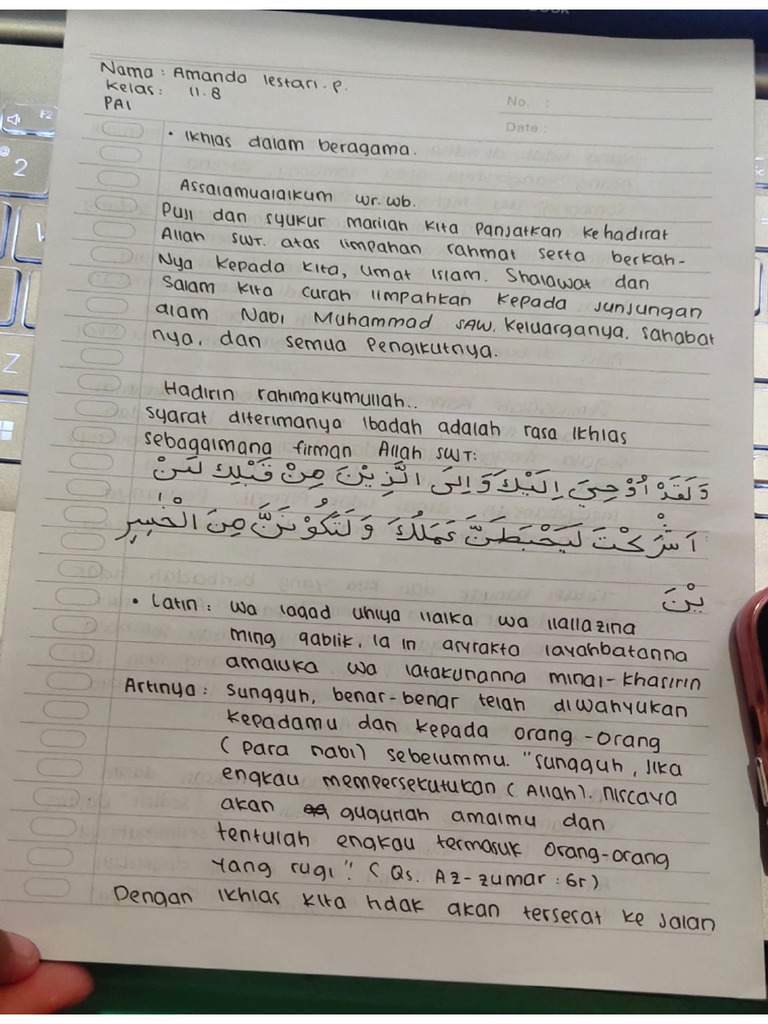 Nama : Amanda lestari. P.
Kelas : 11.8
PAI
No. :
Date :
• Ikhlas dalam beragama.
Assalamualaikum wr. wb.
Puji dan syukur marilah kita panjatkan kehadirat
Allah SWT. atas limpahan rahmat serta berkah-
Nya kepada kita, umat islam. Shalawat dan
Salam kita curah limpahkan kepada junjungan
alam Nabi Muhammad SAW. keluarganya, sahabat
nya, dan semua pengikutnya.
Hadirin rahimakumullah..
Syarat diterimanya ibadah adalah rasa ikhlas
sebagaimana firman Allah SWT:
وَلَقَدْ اُوْحِيَ اِلَيْكَ وَاِلَى الَّذِيْنَ مِنْ قَبْلِكَ لَىِٕنْ
اَشْرَكْتَ لَيَحْبَطَنَّ عَمَلُكَ وَلَتَكُوْنَنَّ مِنَ الْخٰسِرِ
يْنَ
• Latin : wa laqad uhiya ilaika wa ilallazina
ming qablik, la in asyrakta layahbatanna
amaluka wa latakunanna minal-khasirin
Artinya : sungguh, benar-benar telah diwahyukan
kepadamu dan kepada orang-orang
(para nabi) sebelummu. "sungguh, jika
engkau mempersekutukan (Allah). niscaya
akan gugurlah amalmu dan
tentulah engkau termasuk orang-orang
yang rugi". (Qs. Az-zumar : 65)
Dengan ikhlas kita tidak akan tersesat ke jalan